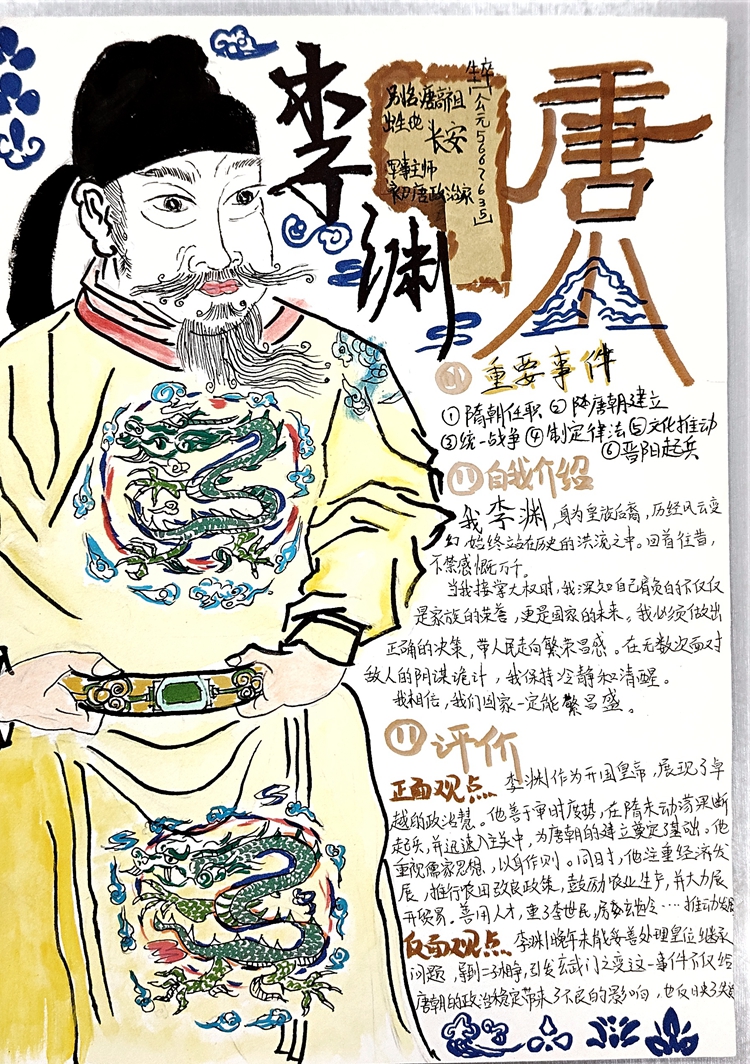 李渊
别名唐高祖
出生地
长安
军事主师
初唐政治家
生卒[公元566?635]
唐
重要事件
①隋朝任职 ② 陏唐朝建立
③统一战争 ④ 制定律法 ⑤文化推动
⑥晋阳起兵
自我介绍
我李渊,身为皇族后裔,历经风云变
幻 始终站在历史的洪流之中。回首往昔,
不禁感慨万千。
当我接掌大权时,我深知自己肩负的不仅仅
是家族的荣誉,更是国家的未来。我必须做出
正确的决策,带人民走向繁荣昌盛。在无数次面对
敌人的阴谋诡计,我保持冷静和清醒。
我相信,我们国家一定能繁昌盛。
评价
正面观点 李渊作为开国皇帝,展现了卓
越的政治慧。他善于审时度势,在隋末动荡果断
起兵,并迅速入主关中,为唐朝的建立奠定了基础。他
重视儒家思想,以身作则。同时,他注重经济发
展,推行农田改良政策,鼓励农业生产,并大力展
开贸易。善用人才,重了李世民,房玄龄令····推动发展
反面观点 李渊晚年未能妥善处理皇位继承
问题,导致二子相争,引发玄武门之变这一事件不仅给
唐朝的政治稳定带来了不良的影响,也反映了失